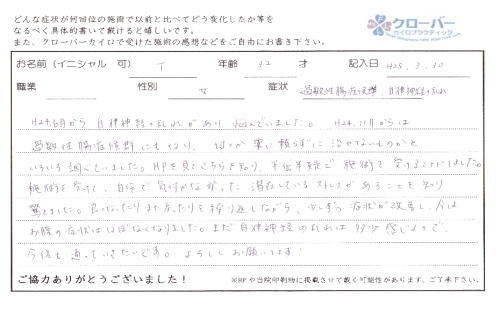 どんな症状が何回位の施術で以前と比べてどう変化したか等を
なるべく具体的書いて戴けると嬉しいです。
また、クローバーカイロで受けた施術の感想などをご自由にお書き下さい。
クローバー
カイロプラクティック
お名前（イニシャル 可） T 年齢 32 才 記入日 H25.3.30
職業 性別 女 症状 過敏性腸症候群、自律神経の乱れ
H24.6月から自律神経の乱れがあり悩んでいました。H24.12月からは
過敏性腸症候群にもなり、何とか薬に頼らずに治せないものかと
いろいろ調べていました。HPを見てこちらを知り、施術を受けることにしました。
施術を受けて、自分で気付かなかった潜在しているストレスがあることを知り
驚きました。良くなったりまた戻ったりを繰り返しながら、少しずつ症状が改善し、今は
お腹の症状はほぼなくなりました。まだ自律神経の乱れは多少感じるので、
今後も通っていきたいです。よろしくお願いします！
ご協力ありがとうございました！ ※HPや当院印刷物に掲載させて戴く可能性があります、ご了承下さい。